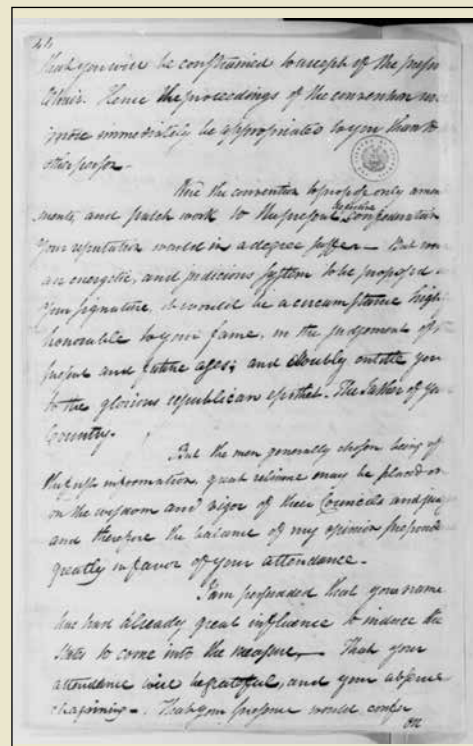 44
that you will be constrained to accept of the
Chair. Hence the proceedings of the convention
more immediately be appropriated to you than to
other person—
Were the convention to propose only amend
ments, and patch work to the present defective confederation
Your reputation would in a degree suffer— But
an energetic, and judicious system to be proposed
Your signature, it would be a circumstance high
honorable to your fame, in the judgement of
present and future ages; and doubly entitle you
to the glorious republican epithet— The Father of
Country.
But the men generally chosen being of
the first information, great reliance may be placed
on the wisdom and vigor of their Councils and
and therefore the balance of my opinion
greatly in favor of your attendance.
I am persuaded that your name
has had already great influence to induce the
States to come into the measure— That your
attendance will be grateful, and your absence
chagrining— That your presence would confer
on